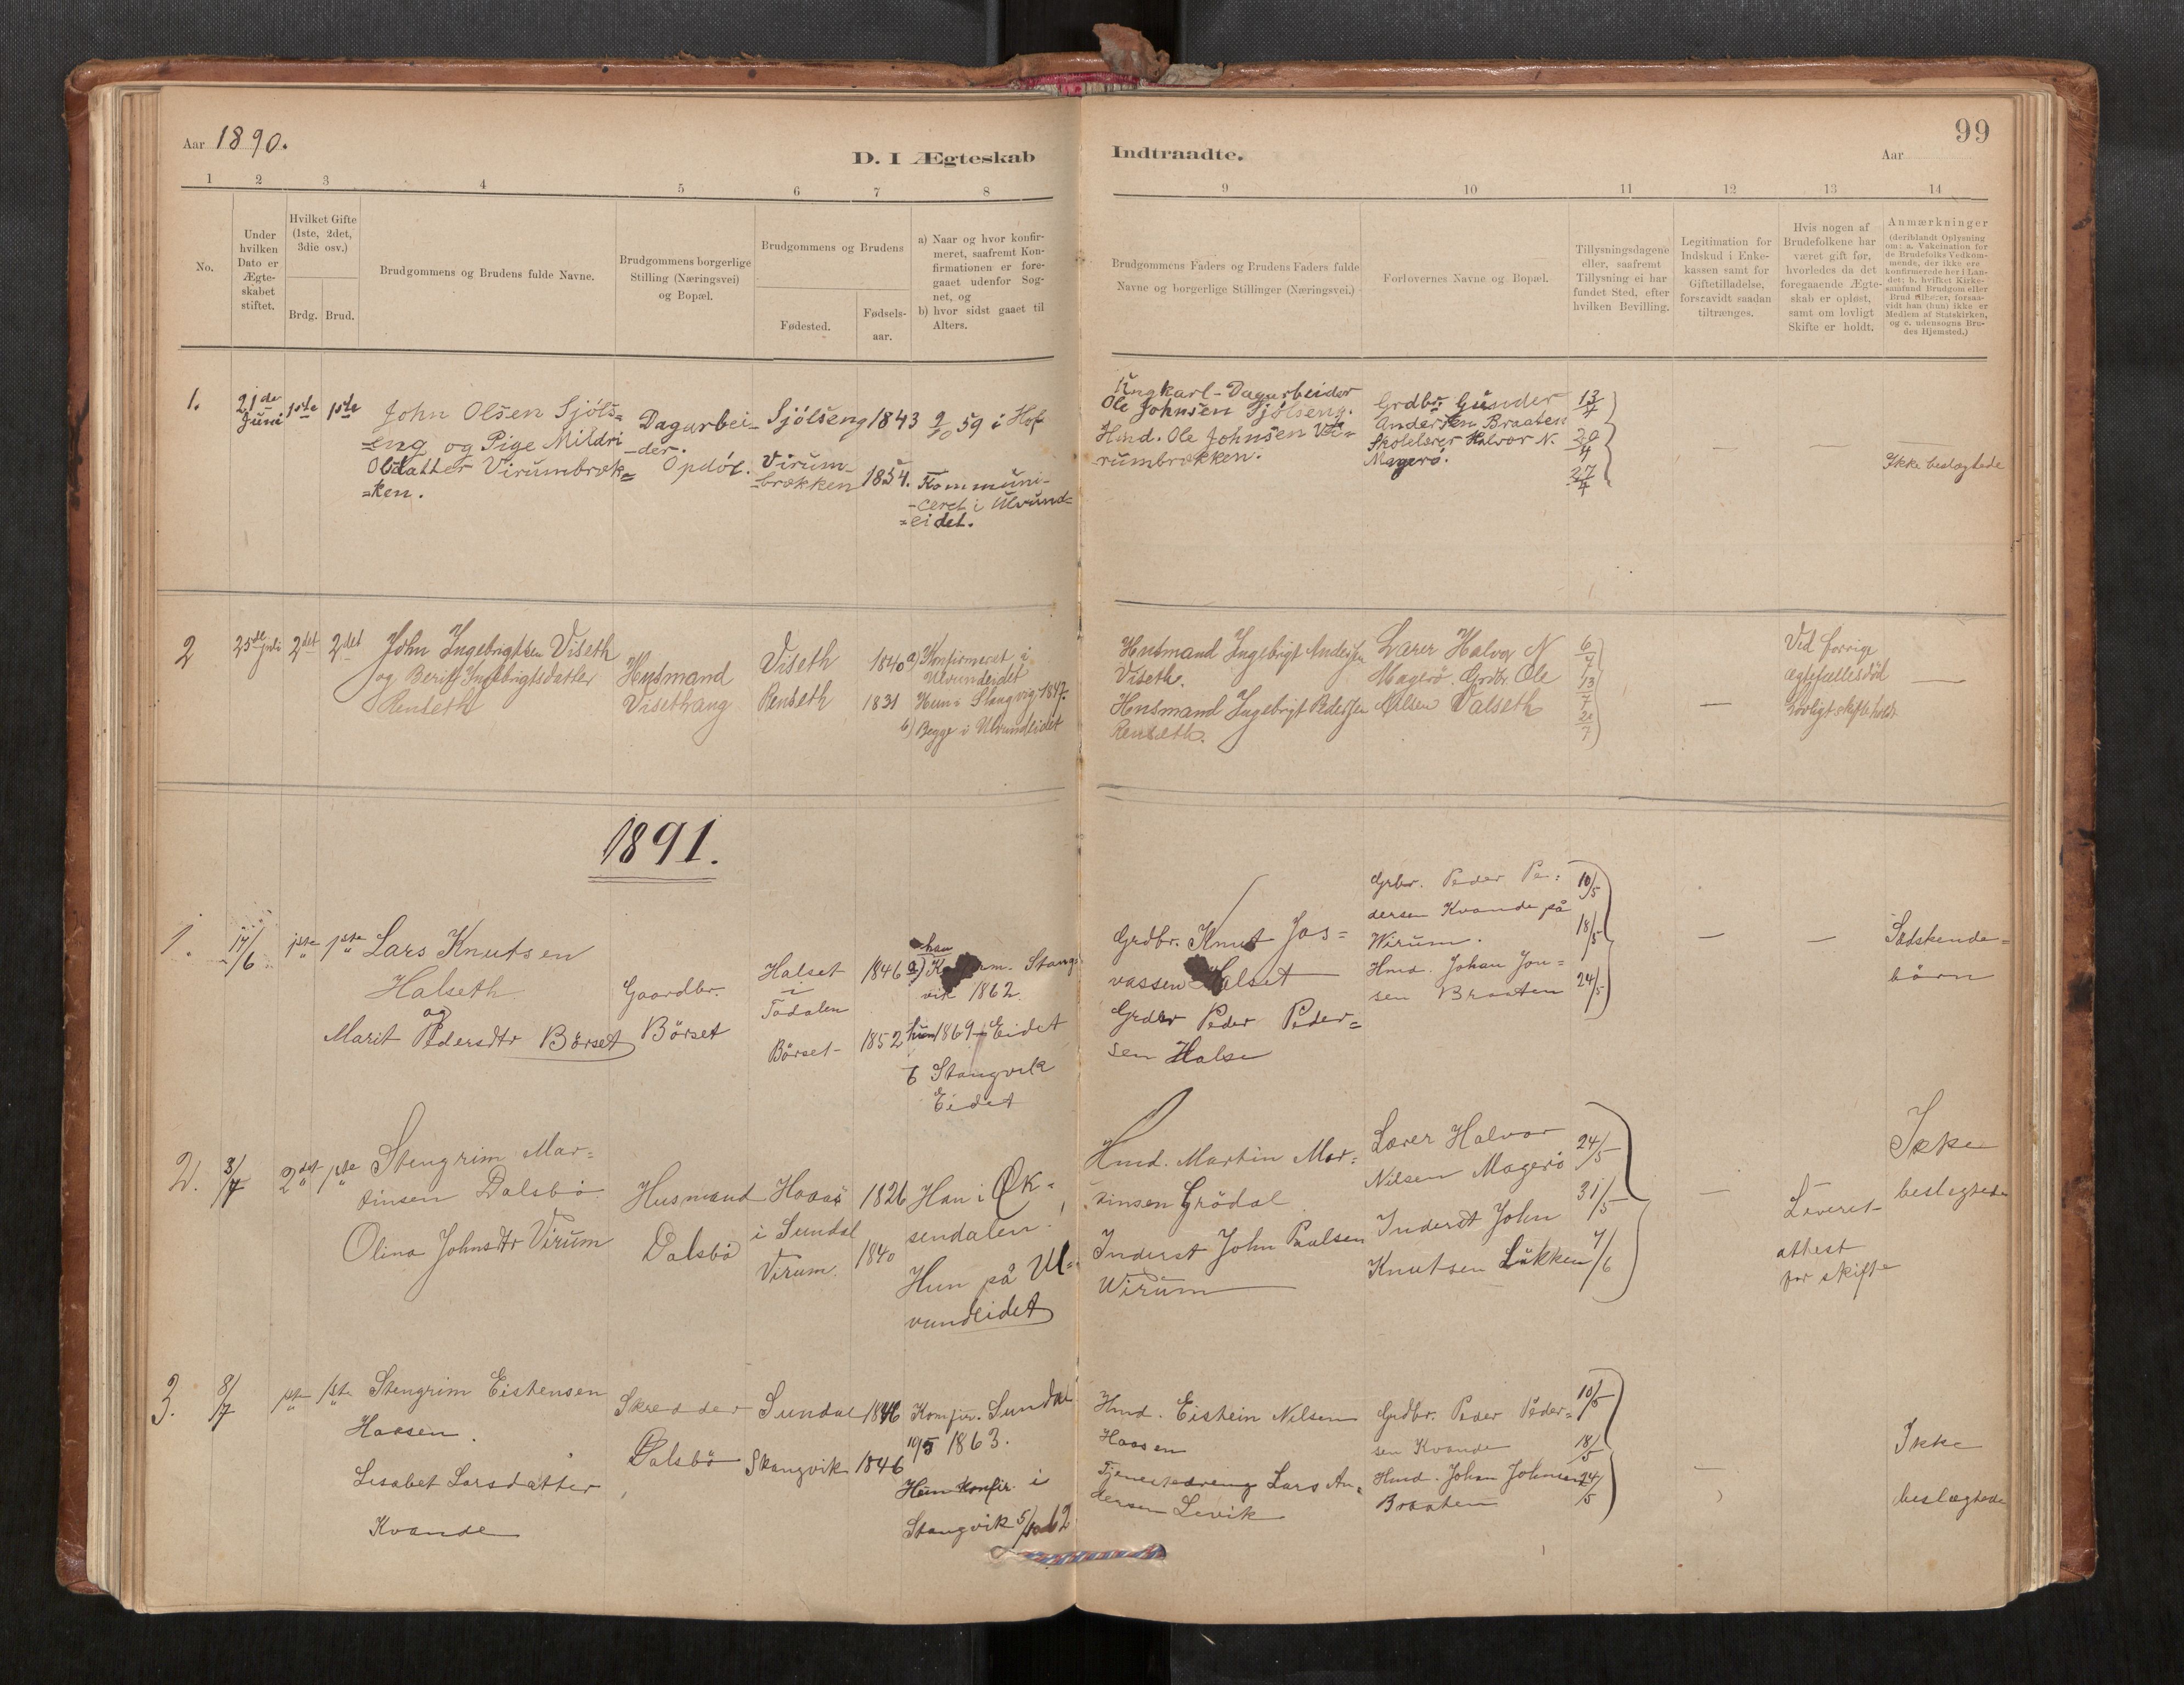 Aar 1890.
D. I Ægteskab
Indtraadte.
99
Aar
1 2 3 4 5 6 7 8 9 10 11 12 13 14
No.
Under
hvilken
Dato er
Ægte-
skabet
stiftet.
Hvilket Gifte
(1ste, 2det,
3die osv.)
Brdg. Brud.
Brudgommens og Brudens fulde Navne.
Brudgommens borgerlige
Stilling (Næringsvei)
og Bopæl.
Brudgommens og Brudens
Fødested.
Fødsels-
aar.
a) Naar og hvor konfir-
meret, saafremt Kon-
firmationen er fore-
gaaet udenfor Sog-
net, og
b) hvor sidst gaaet til
Alters.
Brudgommens Faders og Brudens Faders fulde
Navne og borgerlige Stillinger (Næringsvei.)
Forlovernes Navne og Bopæl.
Tillysningsdagene
eller, saafremt
Tillysning ei har
fundet Sted, efter
hvilken Bevilling.
Legitimation for
Indskud i Enke-
kassen samt for
Giftetilladelse,
forsaavidt saadan
tiltrænges.
Hvis nogen af
Brudefolkene har
været gift før,
hvorledes da det
foregaaende Ægte-
skab er opløst,
samt om lovligt
Skifte er holdt.
Anmærkninger
(deriblandt Oplysning
om: a. Vakcination for
de Brudefolks Vedkom-
mende, der ikke ere
konfirmerede her i Lan-
det; b. hvilket Kirke-
samfund Brudgom eller
Brud tilhører, forsaa-
vidt han (hun) ikke er
Medlem af Statskirken,
og c. udensogns Bru-
des Hjemsted.)
1.
21de
Juni
1ste 1ste
John Olsen Sjöls=
=eng og Pige Mildri
Olsdatter Virumbræk=
=ken.
Dagarbei-
-der.
Opdöl.
Sjölseng 1843
Virum-
-brækken 1854.
9/10 59 i Hof
Kommuni-
-ceret i Ulvund=
=eidet.
Ungkarl-Dagarbeider
Ole Johnsen Sjölseng.
Hmd. Ole Johnsen Vi=
-rumbrækken.
Grdbr. Gunder
Andersen Braaten
Skolelærer Halvor N.
Magerö.
13/4
20/4
27/4
Ikke beslægtede
2
25de juli
2det 2det
John Ingebrigtsen Viseth
og Berit Ingebrigtsdatter
Renseth
Husmand
Visethaug
Viseth 1840
Renseth 1831
a) Konfirmeret i
Ulvundeidet
Hun i Stangvig 1847.
b) Begge i Ulvundeidet
Husmand Ingebrigt Andersen
Viseth.
Husmand Ingebrigt Pedersen
Renseth.
Lærer Halvor N
Magerö. Grdbr. Ole
Nilsen Valseth
6/7
13/7
20/7
Ved forrige
ægtefællesdöd
Lovligt skifte holdt
1891.
1.
17/6
1ste 1ste
Lars Knutsen
Halseth
og
Marit Pedersdtr Börset
Gaardbr.
Börset
Halset
i
Todalen
1846
Börset 1852
han
a) Konfirm. Stang-
vik 1862.
hun 1869 Eidet
b Stangvik
Eidet
Grdbr. Knut Jos=
vassen Halset
Grdbr Peder Peder=
sen Halse
Grbr. Peder Pe:
dersen Kvande på
Wirum.
Hmd. Johan Jon=
sen Braaten
10/5
18/5
24/5
Södskende=
börn
2.
3/7
2det 1ste
Stengrim Mar=
tinsen Dalsbö.
Olina Johnsdtr Virum
Husmand
Dalsbö
Hoaas
i Sundal
Virum.
1826
1840
Han i Øk=
sendalen.
Hun på Ul=
vundeidet
Hmd. Martin Mar=
tinsen Grödal
Inderst John Paulsen
Wirum
Lærer Halvor
Nilsen Magerö
Inderst John
Knutsen Løkken
24/5
31/5
7/6
Leveret
attest
for skifte
Ikke
beslegtede
3.
8/7
1ste 1ste
Stengrim Eistensen
Hoasen.
Lisabet Larsdatter
Kvande
Skredder
Dalsbö
Sundal 1846
Stangvik 1846
Konfir. Sundal
1863.
Hun Konfir. i
Stangvik
Hmd. Eistein Nilsen
Hoasen
Tjenestedreng Lars An=
dersen Levik
Grdbr. Peder Peder=
sen Kvande
Hmd. Johan Johnsen
Braaten
10/5
18/5
24/5
Ikke
beslægtede